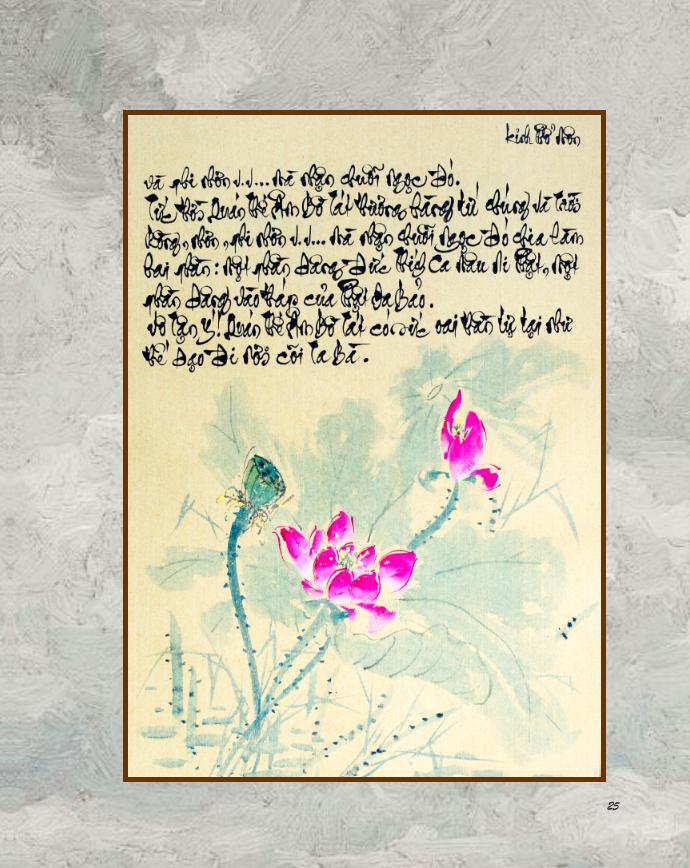 Kinh Phổ Môn
và phi nhơn v.v... mà nhận chuỗi ngọc đó.
Tức thời Quán Thế Âm Bồ Tát thương hàng tứ chúng và trời
rồng, nhơn, phi nhơn v.v... mà nhận chuỗi ngọc đó chia làm
hai phần: một phần dâng đức Thích Ca Mâu Ni Phật, một
phần dâng vào tháp của Phật Đa Bảo.
Vô Tận Ý! Quán Thế Âm Bồ Tát có sức oai thần tự tại như
thế dạo đi nơi cõi Ta Bà.
25